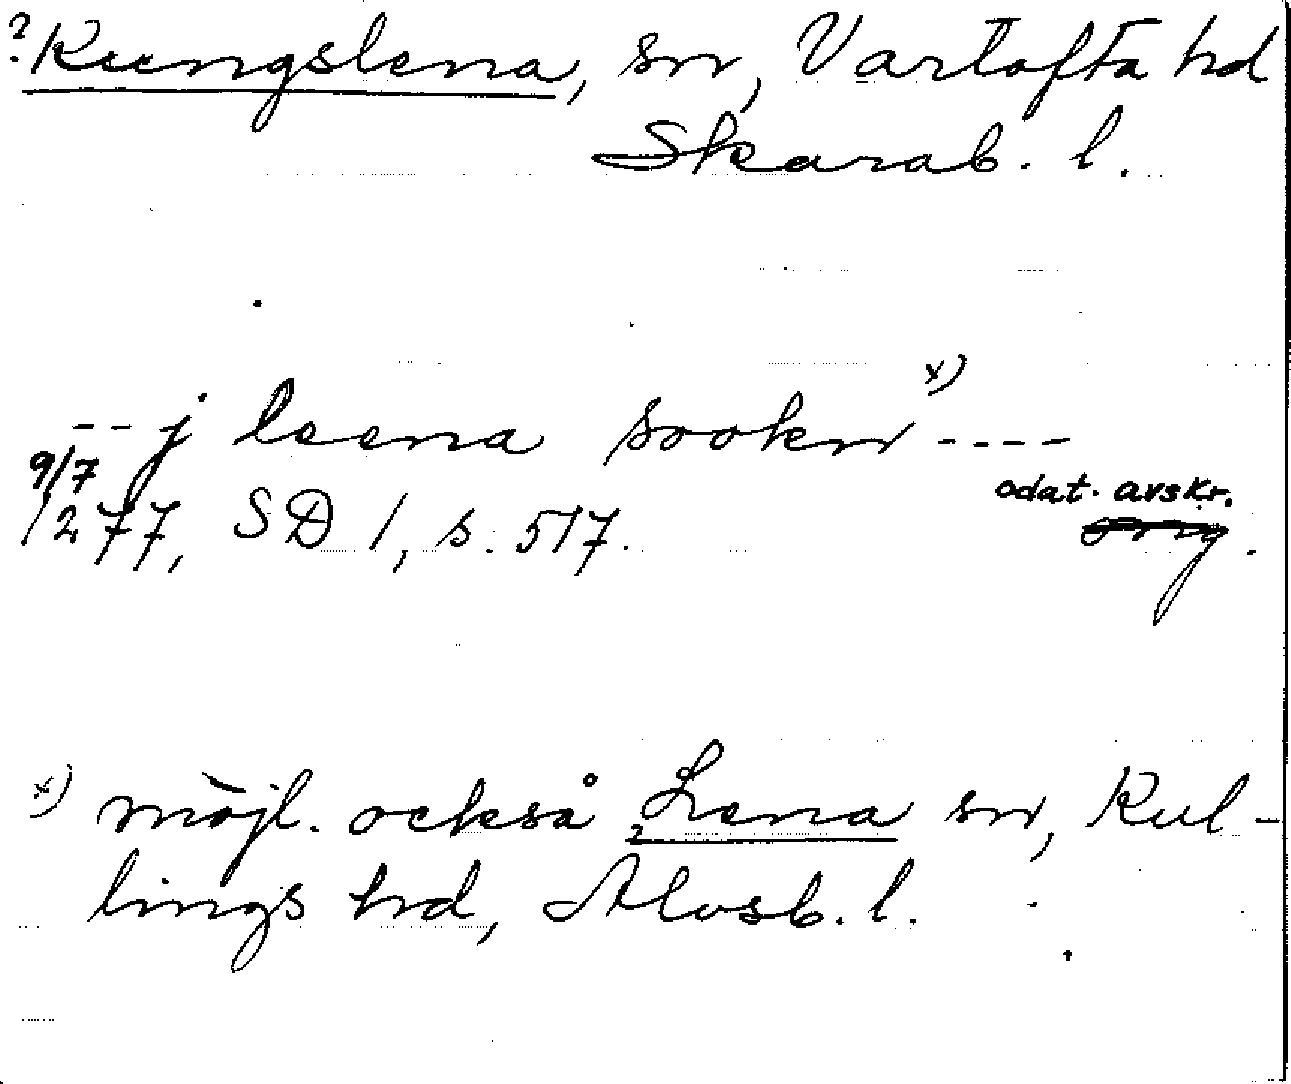 ?Kungslena, sn, Vartofta hd
Skarab. l.
--j leena sookn x) ----
9/7
1277, SD 1, s. 517. odat. avskr.
x) möjl. också ?Lena sn, Kul-
lings hd, Älvsb. l.